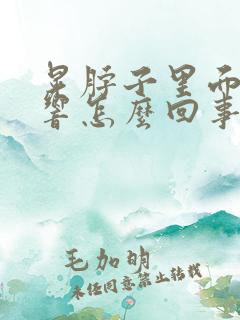 晃脖子里而
響怎麼回事
毛加明
未经同意禁止转载